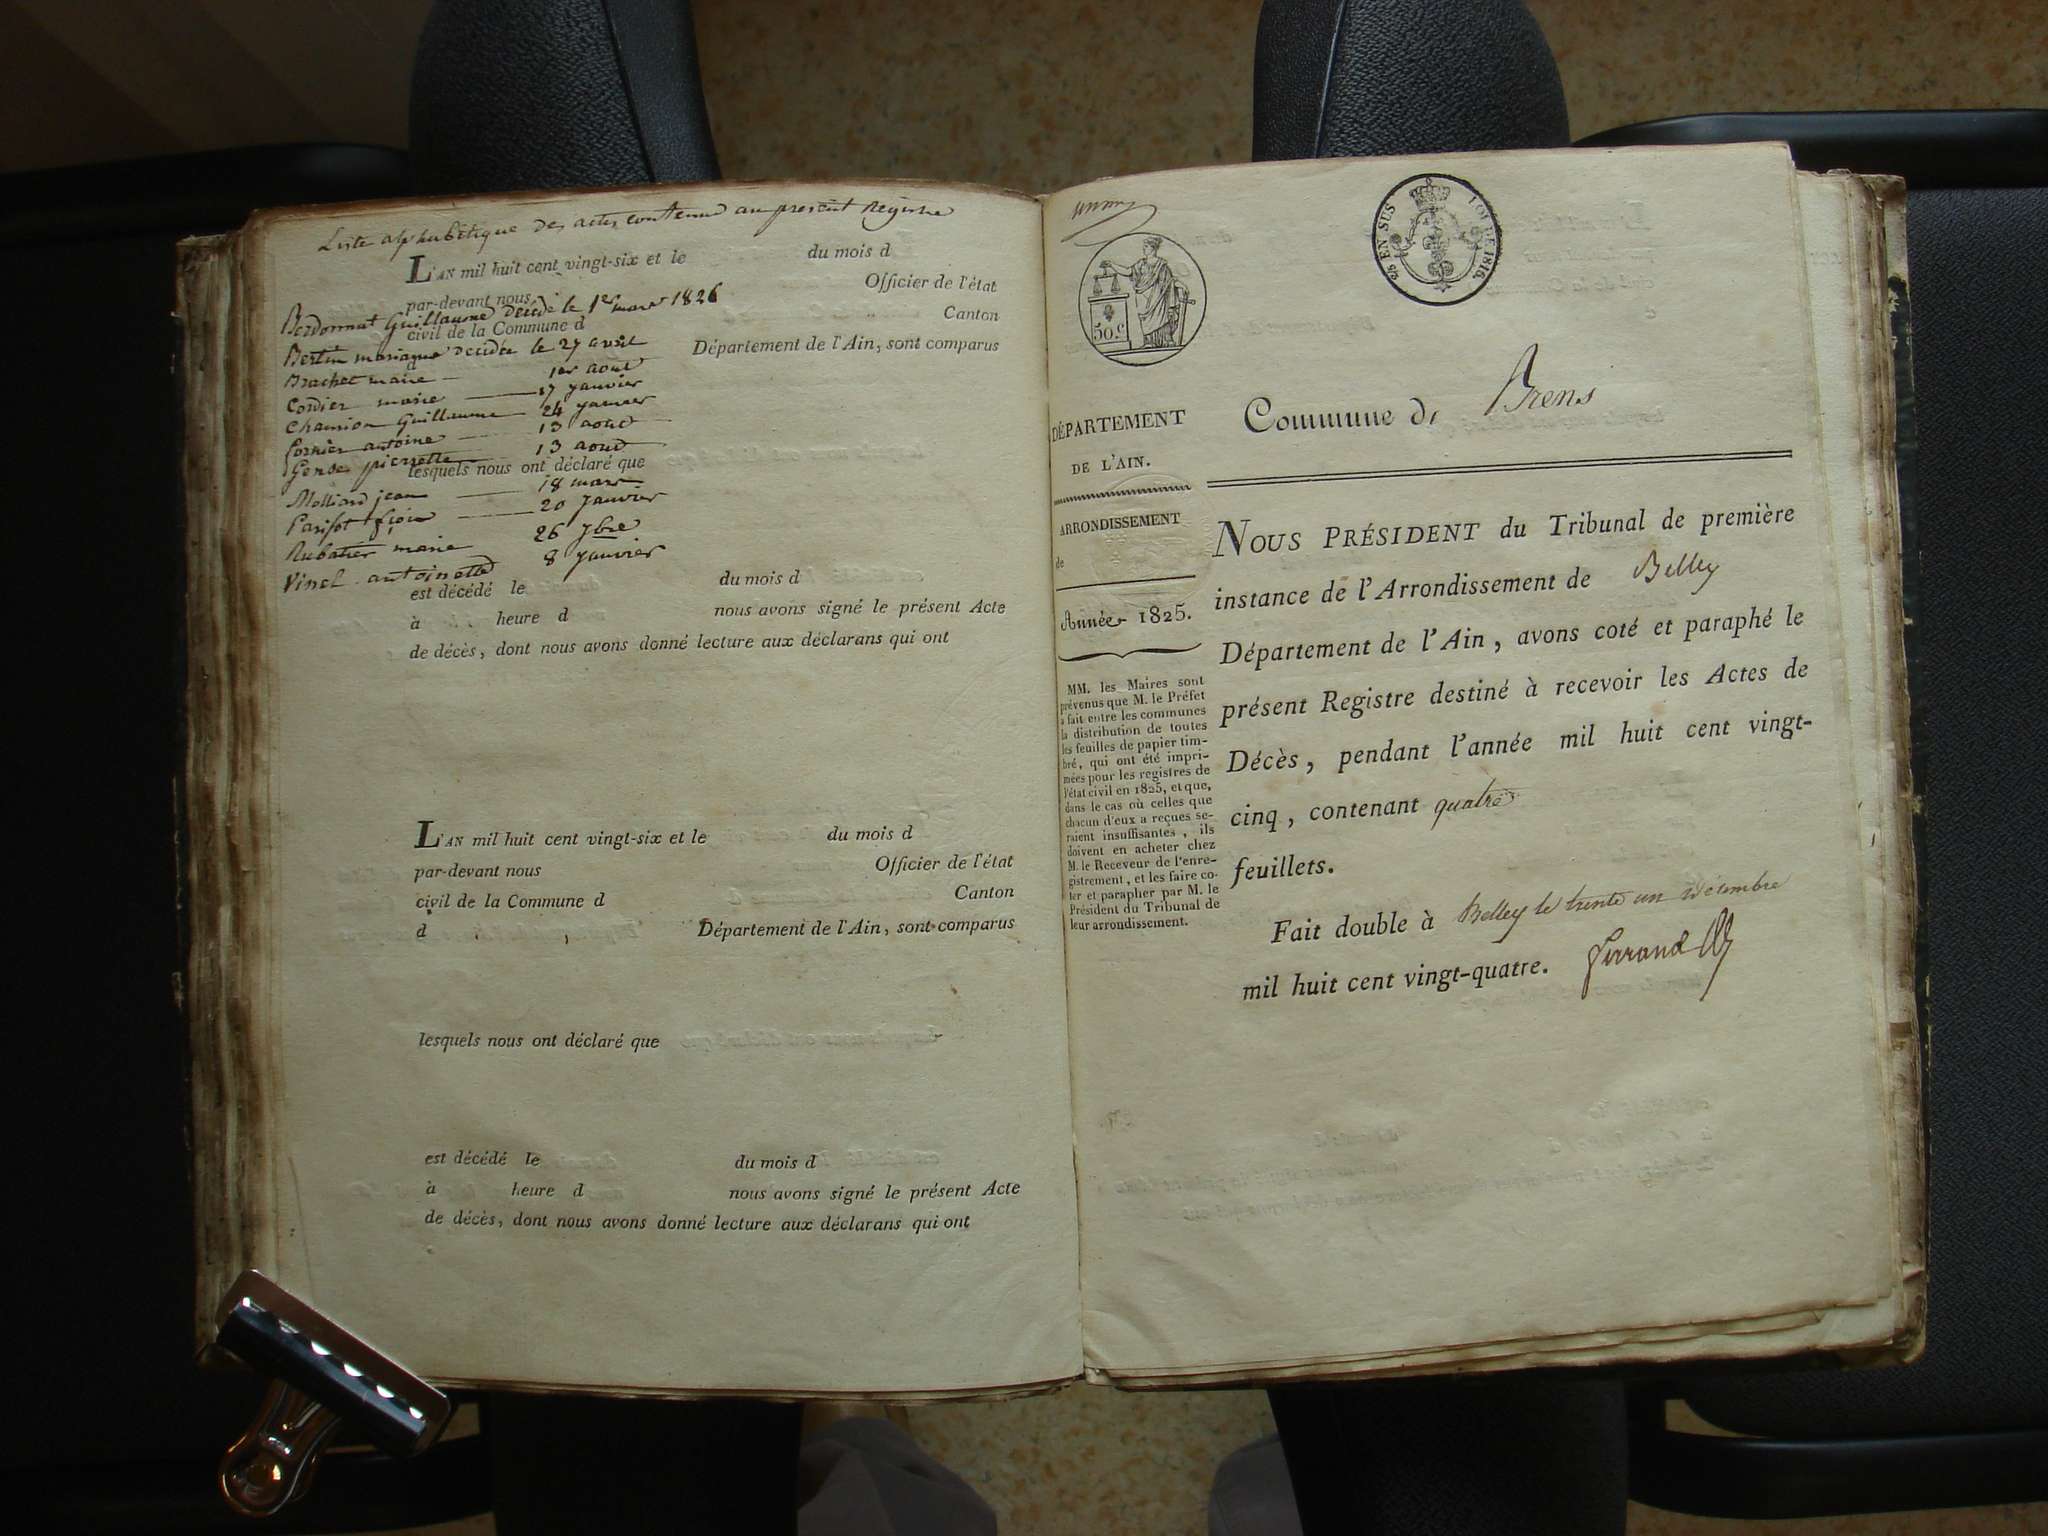 Liste alphabétique des actes contenu au présent Registre
L'AN mil huit cent vingt-six et le du mois d
par-devant nous Officier de l'état
Berdonnat Guillaume décédé le 1er mars 1826
civil de la Commune d Canton
Bertin mariague décédée le 27 avril
d Département de l'Ain, sont comparus
Brachet marie — 1er aout
Cordier marie — 17 janvier
Chamion Guillaume — 24 janvier
antoine — 13 aout
pierrette — 13 aout
lesquels nous ont déclaré que
Molliard jean — 18 mars
Parisot — 20 janvier
Rubatier marie 26 7bre
Vinel antoinette 8 janvier
est décédé le du mois d
à heure d nous avons signé le présent Acte
de décès, dont nous avons donné lecture aux déclarans qui ont
L'AN mil huit cent vingt-six et le du mois d
par-devant nous Officier de l'état
civil de la Commune d Canton
d Département de l'Ain, sont comparus
lesquels nous ont déclaré que
est décédé le du mois d
à heure d nous avons signé le présent Acte
de décès, dont nous avons donné lecture aux déclarans qui ont
50.c
25 EN SUS LOI DE 1816.
DÉPARTEMENT
DE L'AIN.
ARRONDISSEMENT
de
Année 1825.
MM. les Maires sont
prévenus que M. le Préfet
a fait entre les communes
la distribution de toutes
les feuilles de papier tim-
bré, qui ont été impri-
mées pour les registres de
l'état civil en 1825, et que,
dans le cas où celles que
chacun d'eux a reçues se-
raient insuffisantes, ils
doivent en acheter chez
M. le Receveur de l'enre-
gistrement, et les faire co-
ter et parapher par M. le
Président du Tribunal de
leur arrondissement.
Commune de Brens
NOUS PRÉSIDENT du Tribunal de première
instance de l'Arrondissement de Belley
Département de l'Ain, avons coté et paraphé le
présent Registre destiné à recevoir les Actes de
Décès, pendant l'année mil huit cent vingt-
cinq, contenant quatre
feuillets.
Fait double à Belley le trente un décembre
mil huit cent vingt-quatre.